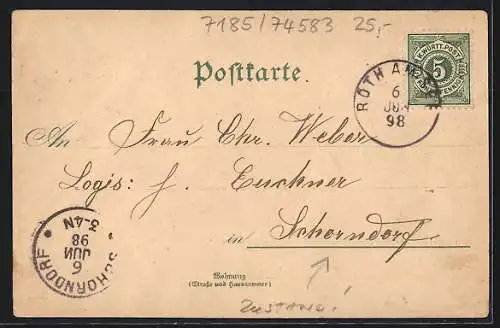 7185/74583 25,-
Postkarte.
K. WÜRTT. POST
5
ROTH AM SEE
6
JUN
98
An Frau Chr. Weber
Logis: f. Euchner
in Schorndorf
SCHORNDORF
6
JUN
98
3-4N
Wohnung
(Straße und Hausnummer)
ZUSTAND!